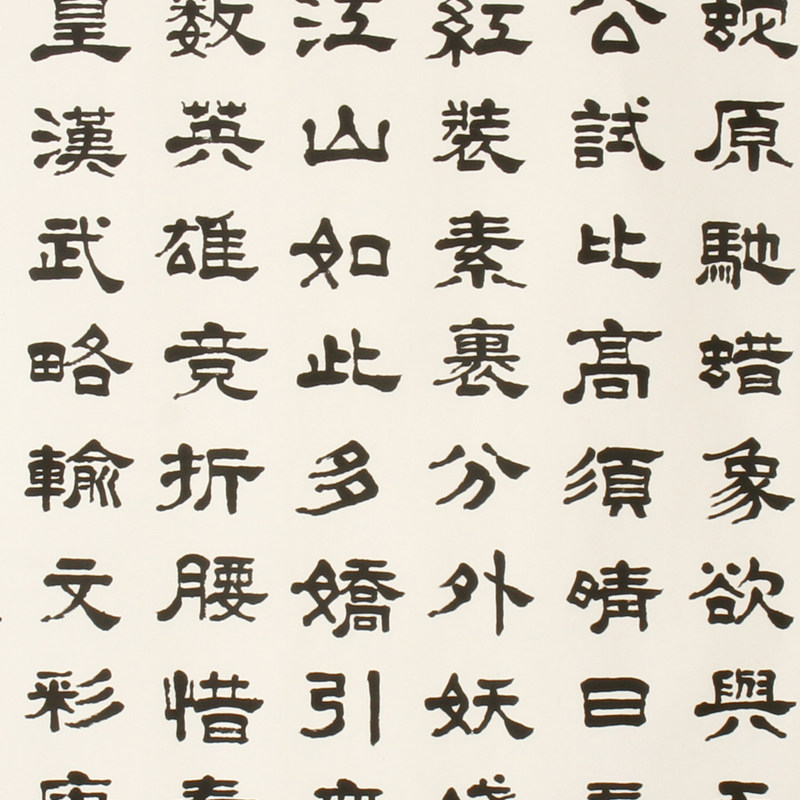 蛇原馳蜡象欲與
公試比高須晴日
紅裝素裹分外妖
江山如此多嬌引
数英雄竞折腰惜
皇漢武略輸文彩